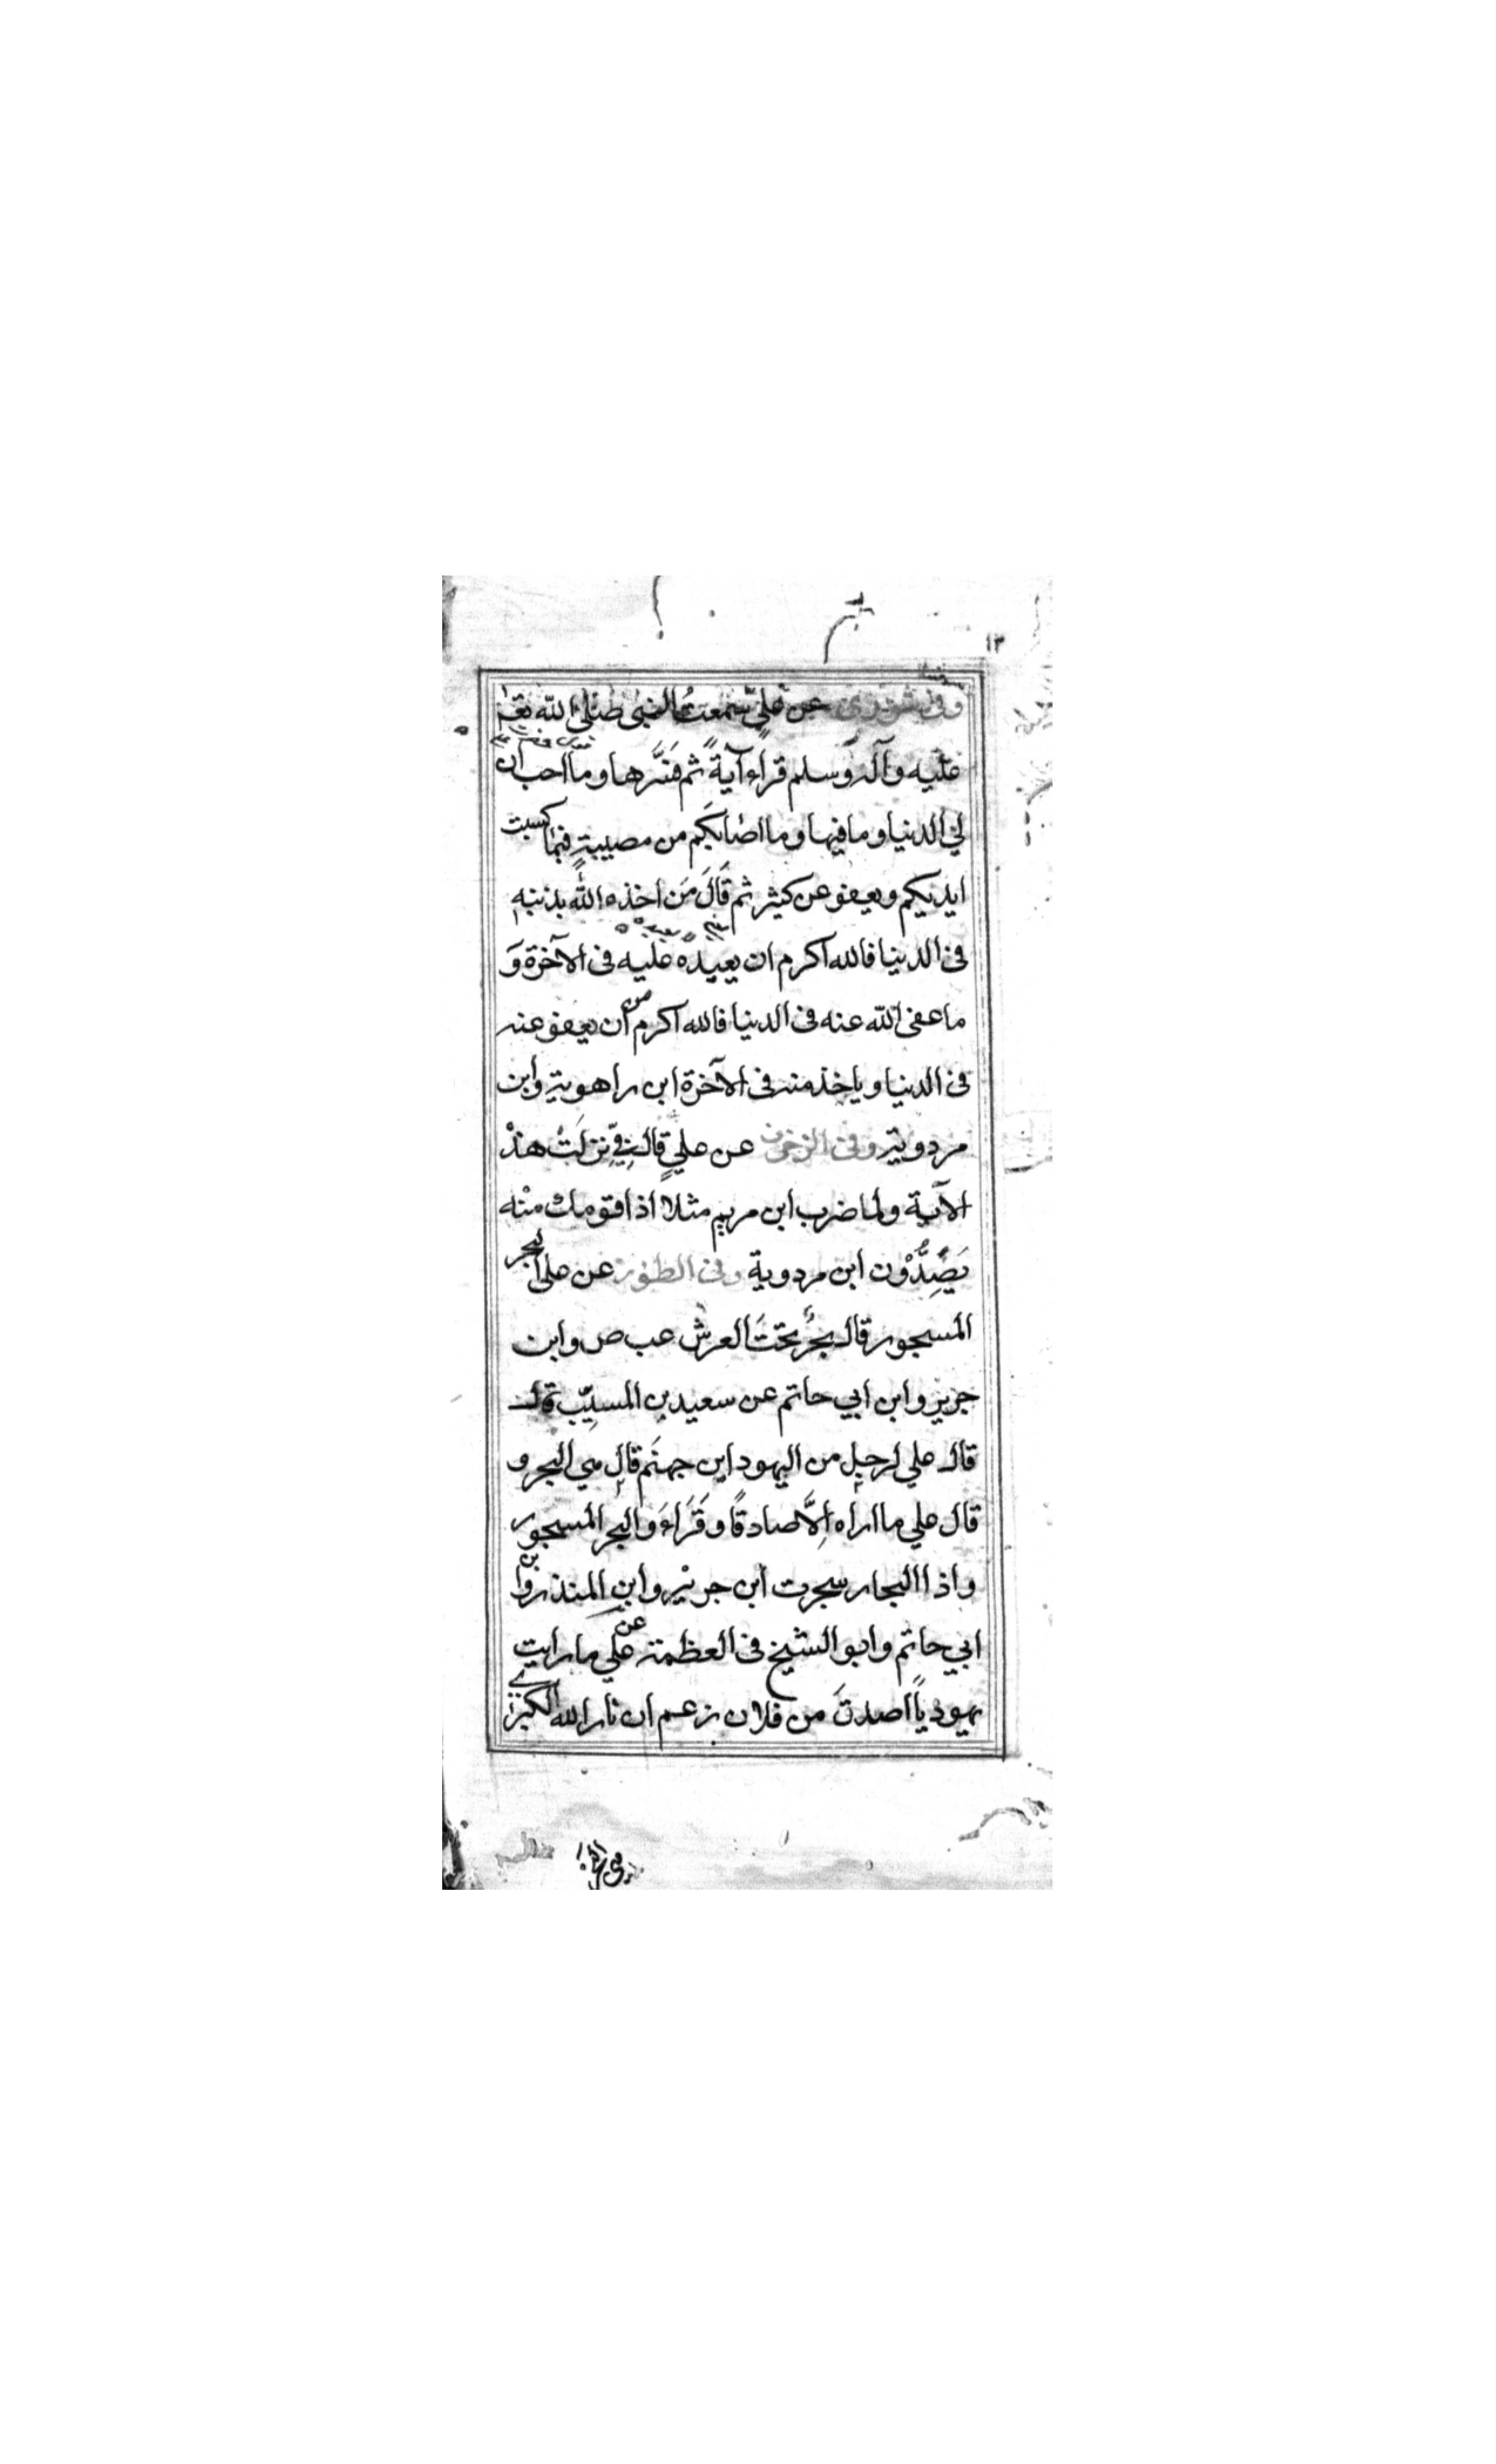 ١٣
وفى شورى عن علي سمعت النبى صلى الله تع
عليه وآله وسلم قراء آية ثم فسّرها وما احب ان
لي الدنيا وما فيها وما اصابكم من مصيبةٍ فبما كسبت
ايديكم ويعفو عن كثير ثم قَالَ مَن اخذه الله بذنبه
فى الدنيا فالله اكرم ان يعيده عليه فى الآخرة وَ
ما عفى الله عنه فى الدنيا فالله اكرم من ان يعفو عنه
فى الدنيا وياخذ منه فى الآخرة ابن راهوية وابن
مردوية وفى الزخرف عن عليٍ قال فِيَّ نزلَتْ هذه
الآية ولما ضرب ابن مريم مثلا اذا قومك منْه
يَصِدُّوْن ابن مردوية وفى الطور عن على البحر
المسجور قال بحرٌ تحتَ العرش عب ص وابن
جرير وابن ابي حاتم عن سعيد بن المسيّب قال
قال علي لرجلٍ من اليهود اين جهنّم قال هي البحر و
قال علي ما اراه اِلَّا صادقًا وقَرَاءَ والبحر المسجور
واذا البحار سجرت ابن جريْر وابن المنذر وابن
ابي حاتم وابو الشيخ فى العظمة عن علي ما رايت
يهوديًا اصدقَ من فلان زعم ان نار الله الكبرى